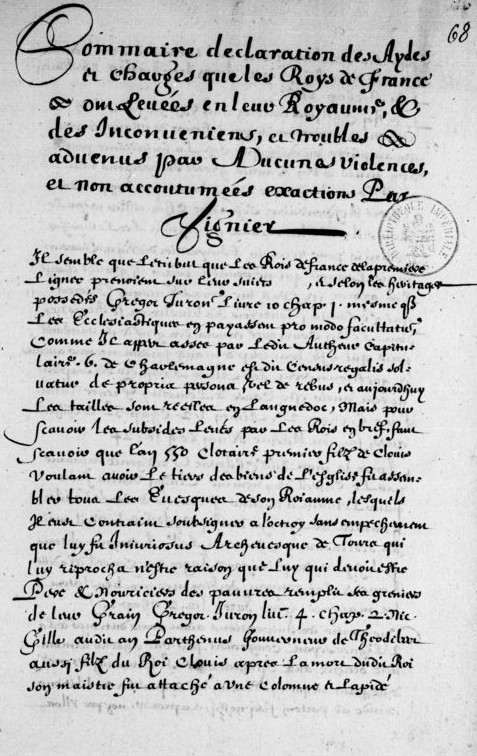 68
Sommaire declaration des Aydes
et charges que les Roys de france
ont Levées en leur Royaume, &
des Inconueniens, et troubles
aduenus par Aucunes violences,
et non accoutumées exactions Par
Vignier
BIBLIOTHEQUE IMPERIALE
Il semble que le tribut que Les Rois de france de la premiere
Lignee prenoient sur leur suiets, et selon les heritages
possedés Gregor Turon. Liure 10 chap 1. mesme q
Les Ecclesiastiques en payassent pro modo facultatus
Comme Il appert assez par Ledit Autheur Capitu-
laire. 6. de Charlemagne est dit Census regalis sol-
uatur de propria persona vel de rebus, et aujourdhuy
Les tailles sont reelles en Languedoc, Mais pour
scauoir les subsides leués par Les Rois en bref, faut
scauoir que Lan 550 Clotaire premier filz de Clouis
voulant auoir Le tiers des biens de L'Eglise fit assem-
bler tous Les Euesques de son Roiaume, lesquels
Il eust Contraint soubsigner a l'octroy sans empechement
que luy fit Iniuriosus Archeuesque de Tours qui
luy reprocha n'estre raison que Luy qui deuoit estre
Pere & Nouriciers des pauures remplit ses greniers
de leur Grain Gregor. Turon liu. 4. chap. 2. Nic.
Gille audit an Parthenus Gouuerneur de Theodebert
aussi filz du Roi Clouis apres La mort dudit Roi
son maistre fut attaché a vne Colomne et Lapidé